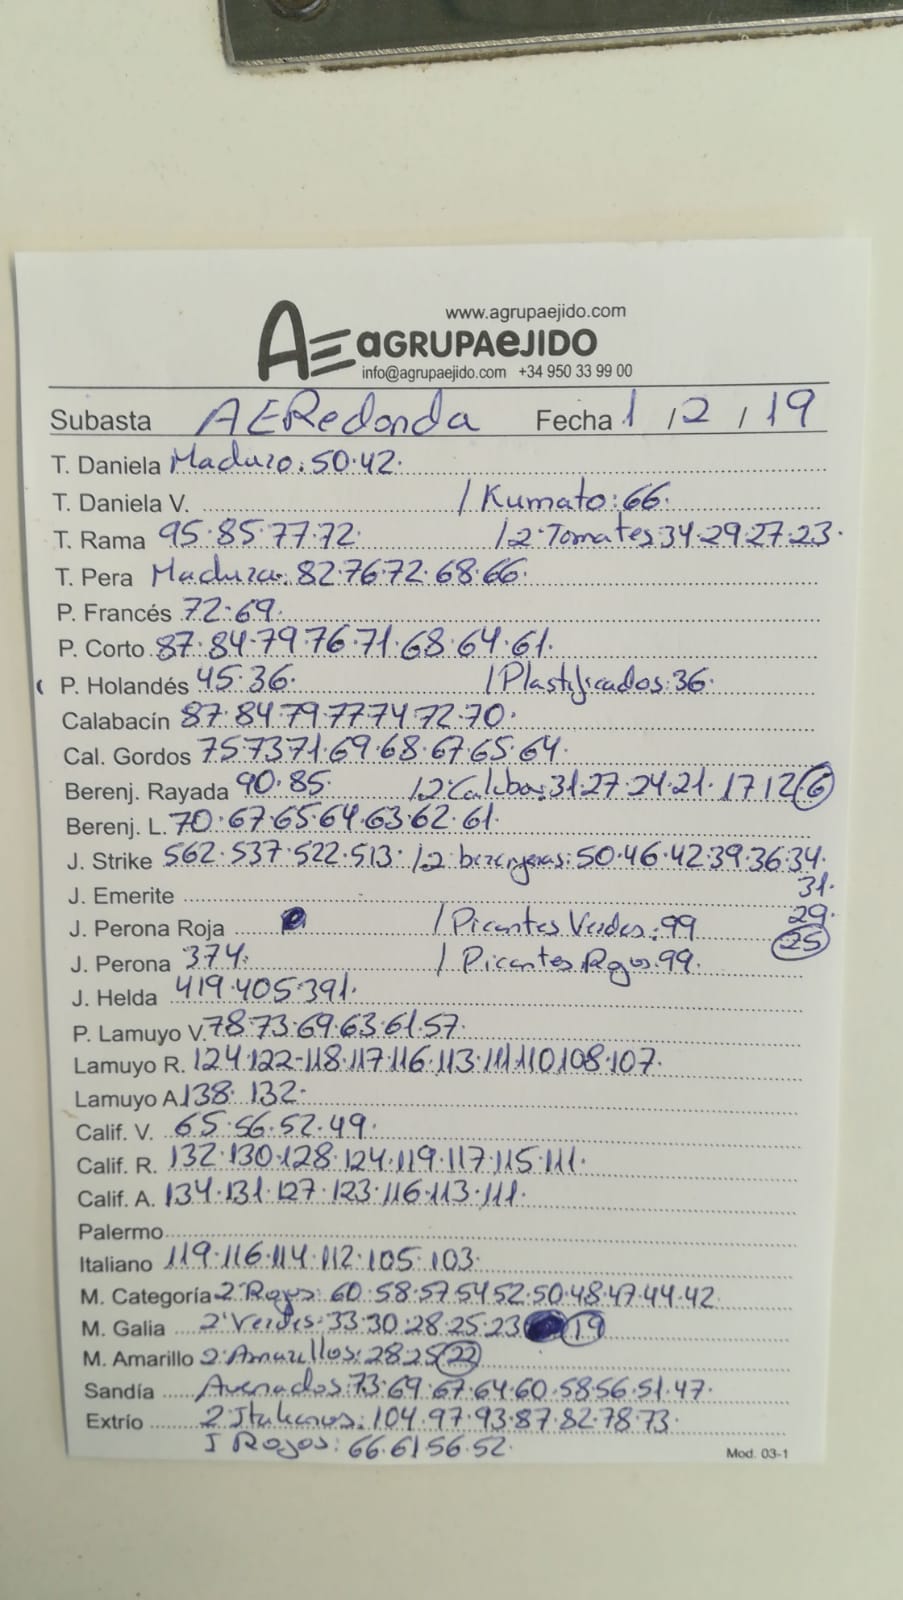 www.agrupaejido.com
AE aGRUPAeJIDO
info@agrupaejido.com +34 950 33 99 00
Subasta AERedonda Fecha 1 / 2 / 19
T. Daniela Maduro: 50·42·
T. Daniela V. / Kumato: 66·
T. Rama 95·85·77·72· / 2ª Tomates: 34·29·27·23·
T. Pera Madura: 82·76·72·68·66·
P. Francés 72·69·
P. Corto 87·84·79·76·71·68·64·61·
P. Holandés 45·36· / Plastificados: 36·
Calabacín 87·84·79·77·74·72·70·
Cal. Gordos 75·73·71·69·68·67·65·64·
Berenj. Rayada 90·85· / 2ª Calaba: 31·27·24·21·17·12·6
Berenj. L. 70·67·65·64·63·62·61·
J. Strike 562·537·522·513· / 2ª berenjenas: 50·46·42·39·36·34·
31·
J. Emerite
29·
J. Perona Roja / Picantes Verdes: 99
25
J. Perona 374· / Picantes Rojos: 99·
J. Helda 419·405·391·
P. Lamuyo V. 78·73·69·63·61·57·
Lamuyo R. 124·122-118·117·116·113·111·110·108·107·
Lamuyo A. 138·132·
Calif. V. 65·56·52·49·
Calif. R. 132·130·128·124·119·117·115·111·
Calif. A. 134·131·127·123·116·113·111·
Palermo
Italiano 119·116·114·112·105·103·
M. Categoría 2ª Rojos: 60·58·57·54·52·50·48·47·44·42·
M. Galia 2ª Verdes: 33·30·28·25·23 19
M. Amarillo 2ª Amarillos: 28·25 22
Sandía Asurcados: 73·69·67·64·60·58·56·51·47·
Extrío 2ª Italianos: 104·97·93·87·82·78·73·
I Rojos: 66·61·56·52·
Mod. 03-1